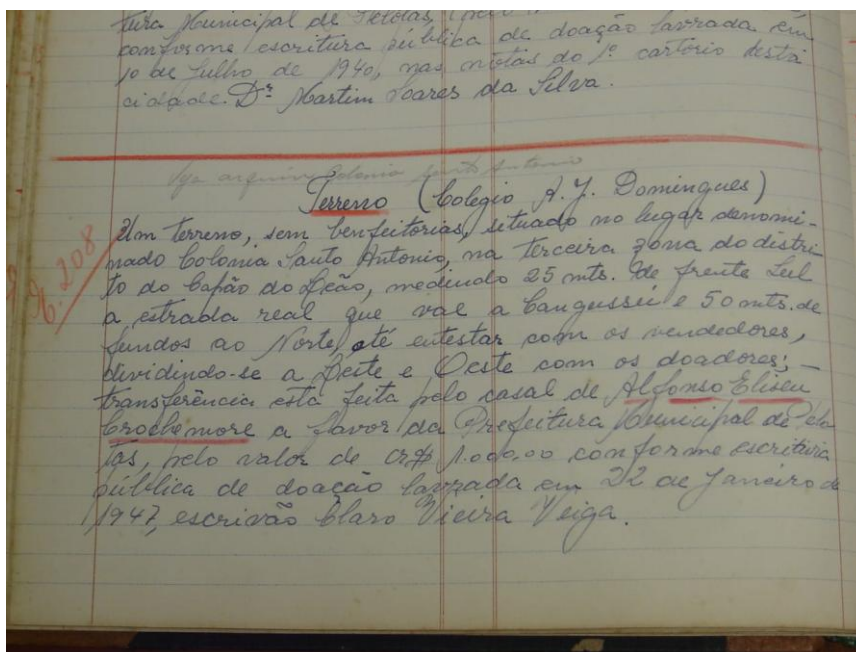 tura Municipal de Pelotas,
conforme escritura pública de doação lavrada em
10 de Julho de 1940, nas notas do 1º cartorio desta
cidade. Dr. Martim Soares da Silva.
Vga arquivo Colonia Santo Antonio
Terreno (Colegio A. J. Domingues)
Um terreno, sem benfeitorias, situado no lugar denomi-
nado Colonia Santo Antonio, na terceira zona do distri-
to do Capão do Leão, medindo 25 mts. de frente Sul
a estrada real que vae a Cangussú e 50 mts. de
fundos ao Norte, até entestar com os vendedores,
dividindo-se a Léste e Oeste com os doadores; —
transferência esta feita pelo casal de Alfonso Eliseu
Crochemore a favor da Prefeitura Municipal de Pelo
tas, pelo valor de CR$ 1.000,00 conforme escritura
pública de doação lavrada em 22 de Janeiro de
1947, escrivão Claro Vieira Veiga.
208